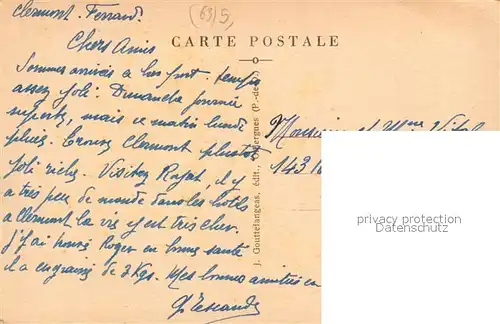 Clermont-Ferrand.
(63)5
Chers Amis
CARTE POSTALE
Sommes arrivés à bon port. temps
assez joli. Dimanche journée
superbe, mais ce matin lundi
pluie. Trouve Clermont plustot
joli riche. Visitez Royat, il y
a très peu de monde dans les hotels
a Clermont la vie y est très cher.
j'y ai trouvé Roger en bonne santé
il a engraissé de 3 Kgs. Mes bonnes amitiés
J. Gouttefangeas, édit., (P.-de-D.)
Monsieur et Mme
143
privacy protection
Datenschutz